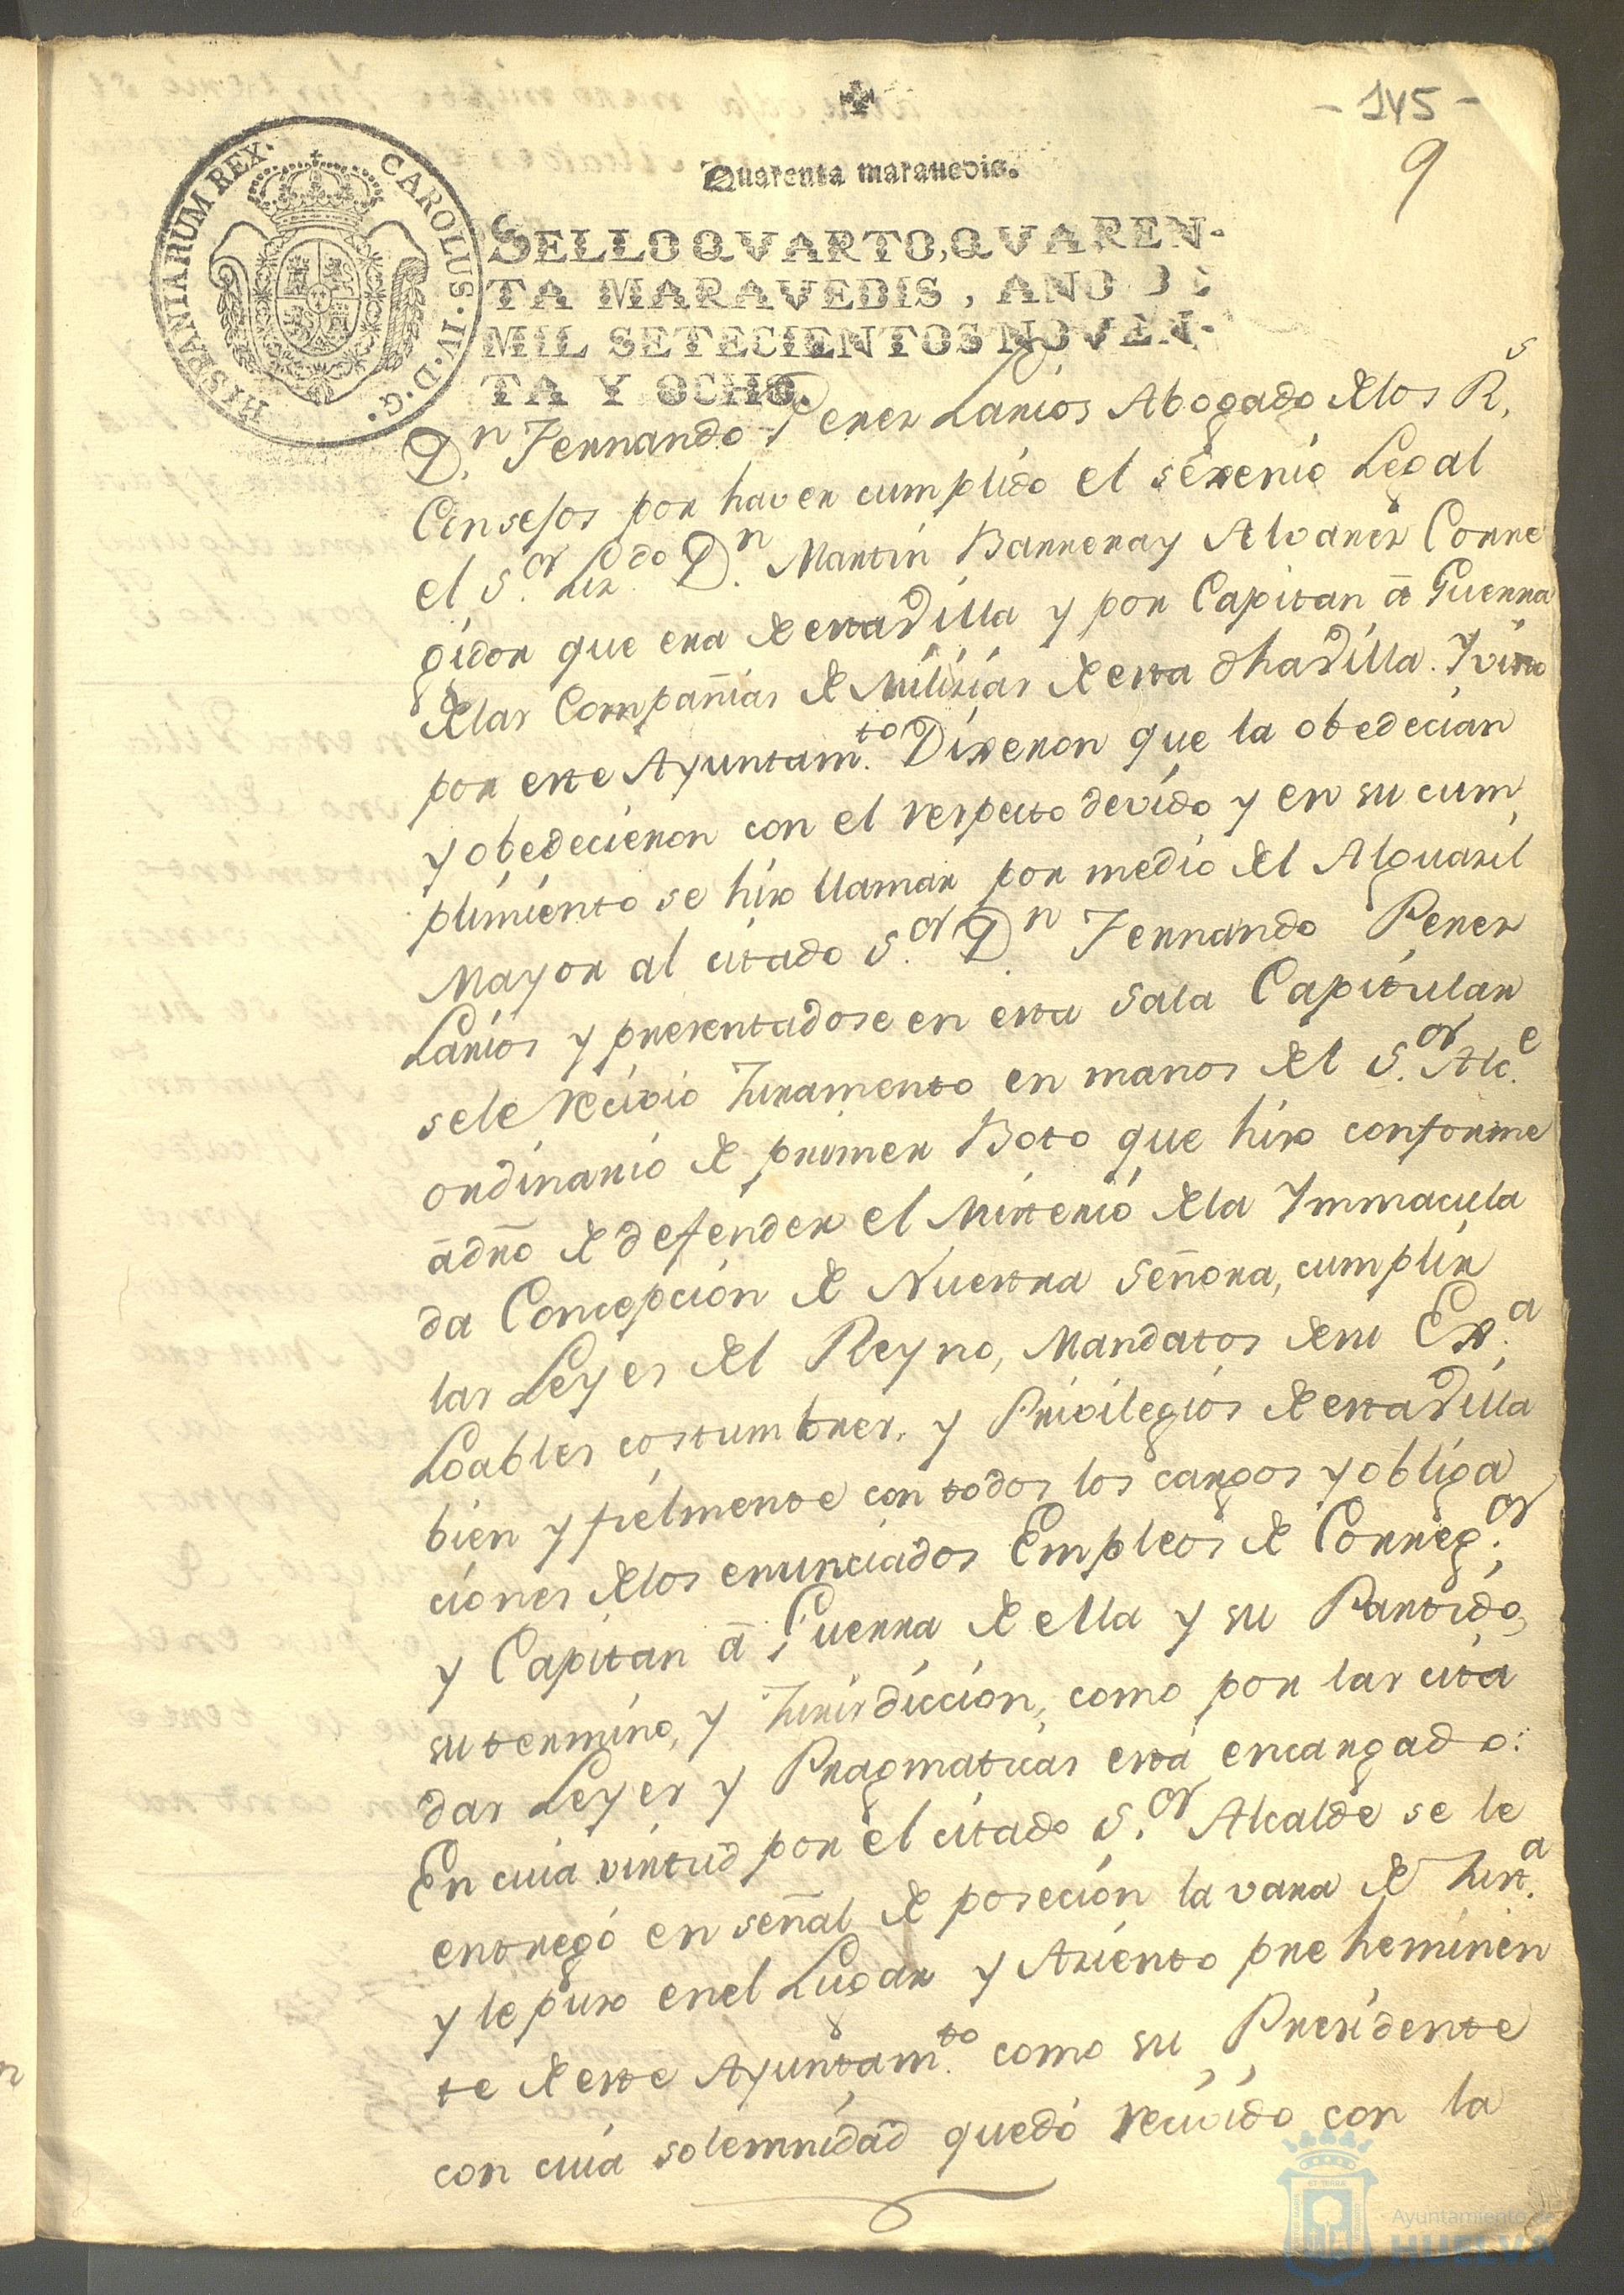 - 145 -
9
Quarenta maravedis.
SELLO QVARTO, QVAREN-
TA MARAVEDIS, AÑO DE
MIL SETECIENTOS NOVEN-
TA Y OCHO.
CAROLUS·IV·D·G· HISPANIARUM REX·
D.n Fernando Perez Larios Abogado de los R.s
Consejos por haver cumplido el sexenio Legal
el S.or Liz.do D.n Martin Barrera y Alvarez Corre
gidor que era de esta Villa y por Capitan à Guerra
de las Compañias de Milizias de esta dha Villa. Y visto
por este Ayuntam.to Dixeron que la obedecian
y obedecieron con el respecto devido y en su cum
plimiento se hizo llamar por medio del Alguazil
Mayor al citado S.or D.n Fernando Perez
Larios y presentadose en esta Sala Capitular
se le recivio Juramento en manos del S.or Alc.e
ordinario de primer Boto que hizo conforme
à dro de defender el Misterio de la Ymmacula
da Concepcion de Nuestra Señora, cumplir
las Leyes del Reyno, Mandatos de su Ex.a
Loables costumbres, y Privilegios de esta Villa
bien y fielmente con todos los cargos y obliga
ciones de los enunciados Empleos de Correg.or
y Capitan à Guerra de ella y su Partido,
su termino, y Jurisdiccion, como por las cita
das Leyes y Pragmaticas està encargado:
En cuia virtud por el citado S.or Alcalde se le
entregó en señal de posecion la vara de Just.a
y le puso en el Lugar y Asiento preheminen
te de este Ayuntam.to como su Presidente
con cuia solemnidad quedó recivido con la
Ayuntamiento de
HUELVA